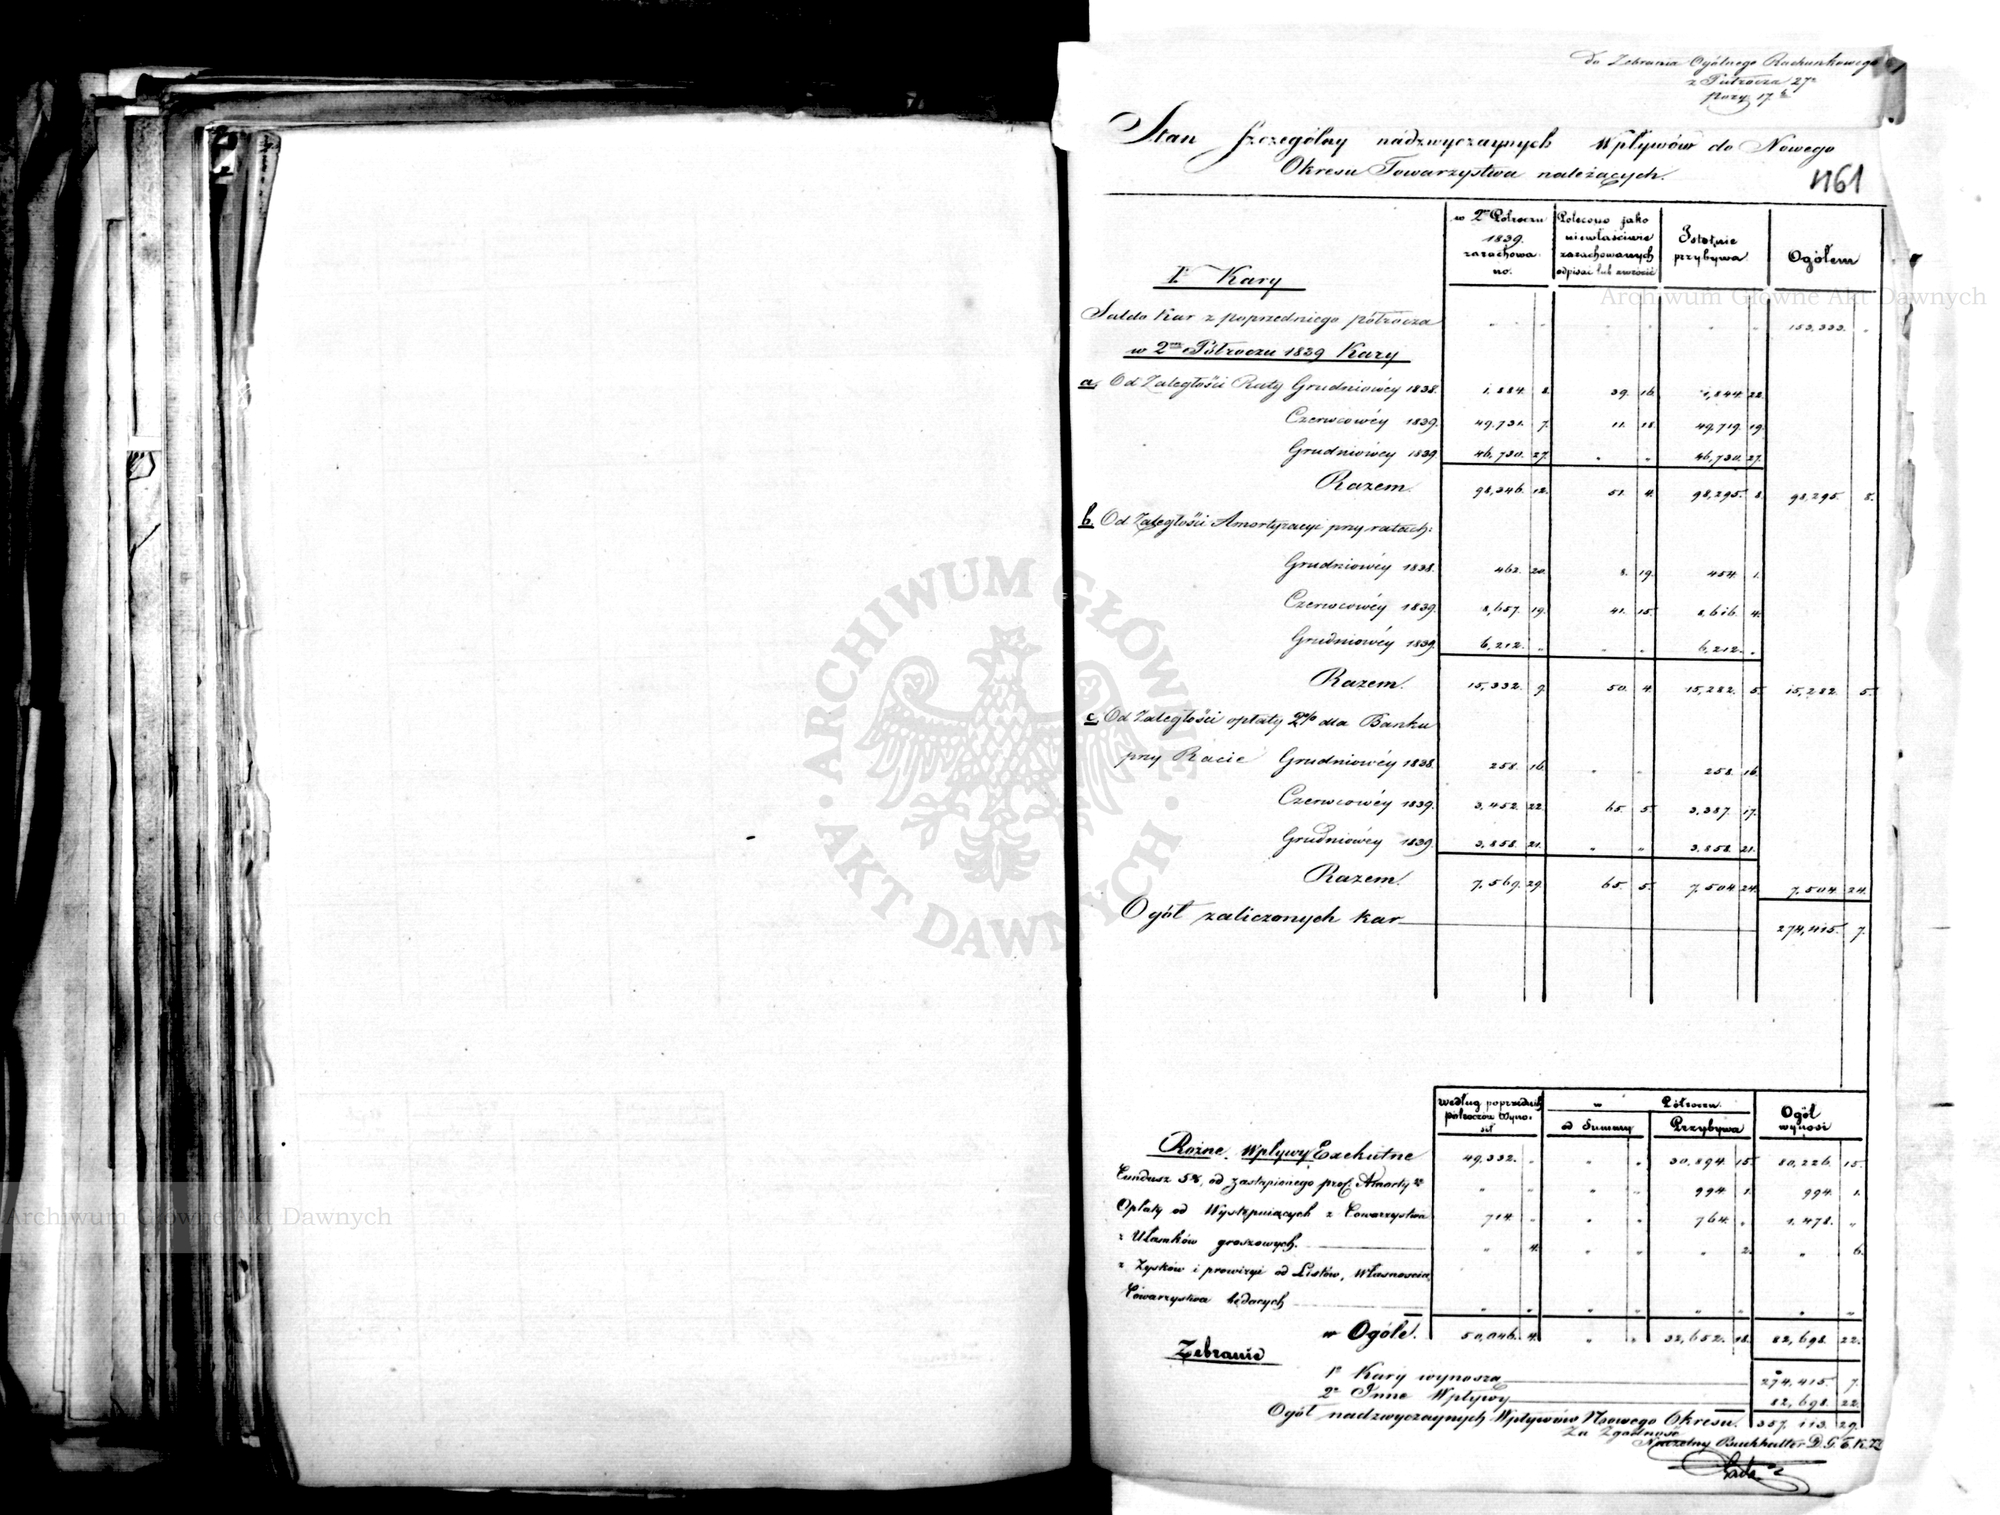 do Zebrania Ogólnego Rachunkowego
z Półrocza 27º
pozy 17
Stan Szczególny nadzwyczaynych Wpływów do Nowego
Okresu Towarzystwa należących.
1161
w 2m Półroczu 1839. zarachowano. | Polecono jako niewłaściwie zarachowanych odpisać lub zwrócić | Istotnie przybywa | Ogółem
1º Kary
Saldo Kar z poprzedniego półrocza " " " " " " 153,333. "
w 2m Półroczu 1839 Kary
a, Od Zaległości Raty Grudniowéy 1838. 1,884. 8. 39. 16. 1,844. 22.
Czerwcowéy 1839. 49,731. 7. 11. 18. 49,719. 19.
Grudniowéy 1839 46,730. 27. " " 46,730. 27.
Razem. 98,346. 12. 51. 4. 98,295. 8. 98,295. 8.
b, Od Zaległości Amortyzacyi przy ratach:
Grudniowéy 1838. 462. 20. 8. 19. 454. 1.
Czerwcowéy 1839. 8,657. 19. 41. 15. 8,616. 4.
Grudniowéy 1839. 6,212. " " " 6,212. "
Razem. 15,332. 9. 50. 4. 15,282. 5. 15,282. 5.
c, Od Zaległości opłaty 2% dla Banku
przy Racie Grudniowéy 1838. 258. 16. " " 258. 16.
Czerwcowéy 1839. 3,452. 22. 65. 5. 3,387. 17.
Grudniowéy 1839. 3,858. 21. " " 3,858. 21.
Razem. 7,569. 29. 65. 5. 7,504. 24. 7,504. 24.
Ogół zaliczonych kar 274,415. 7.
według poprzednich półroczów wynosił | w Półroczu | Ogół wynosi
od Summy | Przybywa
Rożne Wpływy Exekutne 49,332. " " " 30,894. 15. 80,226. 15.
Fundusz 5%, od zastąpionego proc. Amorty " " " " 994. 1. 994. 1.
Opłaty od Występuiących z Towarzystwa 714. " " " 764. " 1,478. "
z Ułamków groszowych. " 4. " " " 2. " 6.
z Zysków i prowizyi od Listów, Własnością
Towarzystwa będących " " " " " " " "
w Ogóle. 50,046. 4. " " 32,652. 18. 82,698. 22.
Zebranie
1º Kary wynoszą 274,415. 7.
2º Inne Wpływy 82,698. 22.
Ogół nadzwyczaynych Wpływów Nowego Okresu. 357,113. 29.
Za Zgodność
Naczelny Buchhalter D. G. T. K. Z.
Archiwum Główne Akt Dawnych
Archiwum Główne Akt Dawnych
ARCHIWUM GŁÓWNE · AKT DAWNYCH ·